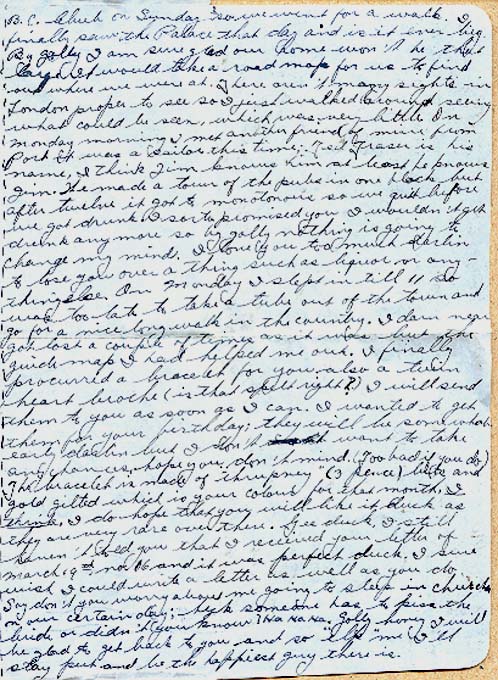 B.C. Club on Sunday so we went for a walk. I
finally saw the Palace that day and is it ever big
By golly I am sure glad our home won't be that
large. It would take a road map for us to find
out where we were at. There aren't many sights in
London proper to see so I just walked around seeing
what could be seen, which was very little. On
Monday morning I met another friend of mine from
Port it was a Sailor this time; Ted Fraser is his
name, I think Jim knows him at least he knows
Jim. We made a tour of the pubs in one block but
after twelve it got to monotonous so we quit before
we got drunk. I sorta promised you I wouldn't get
drunk any more so by golly nothing is going to
change my mind. I love you too much darlin
to lose you over a thing such as liquor or any-
thing else. On Monday I slept in till 11 so
was too late to take a tube out of the town and
go for a nice long walk in the country. I darn near
got lost a couple of times as it was but the
guide map I had helped me out. I finally
procurred a bracelet for you also a twin
heart broche (is that spelt right?) I will send
them to you as soon as I can. I wanted to get
them for your birthday; they will be somewhat
early darlin but I don't want to take
any chances, hope you don't mind. (Too bad if you do)
The bracelet is made of "thrupney" (3 pence) bits and
gold gilted which is your colour for that month, I
think. I do hope that you will like it duck as
they are very rare over there. Gee duck, I still
haven't told you that I received your letter of
march. 9th no 16 and it was perfect duck. I sure
wish I could write a letter as well as you do.
Say don't you worry about me going to sleep in church
on our certain day: heck someone has to kiss the
bride or didn't you know? Ha Ha Ha. Golly honey I will
be glad to get back to you and so "elp" me I'll
stay put and be the happiest guy there is.